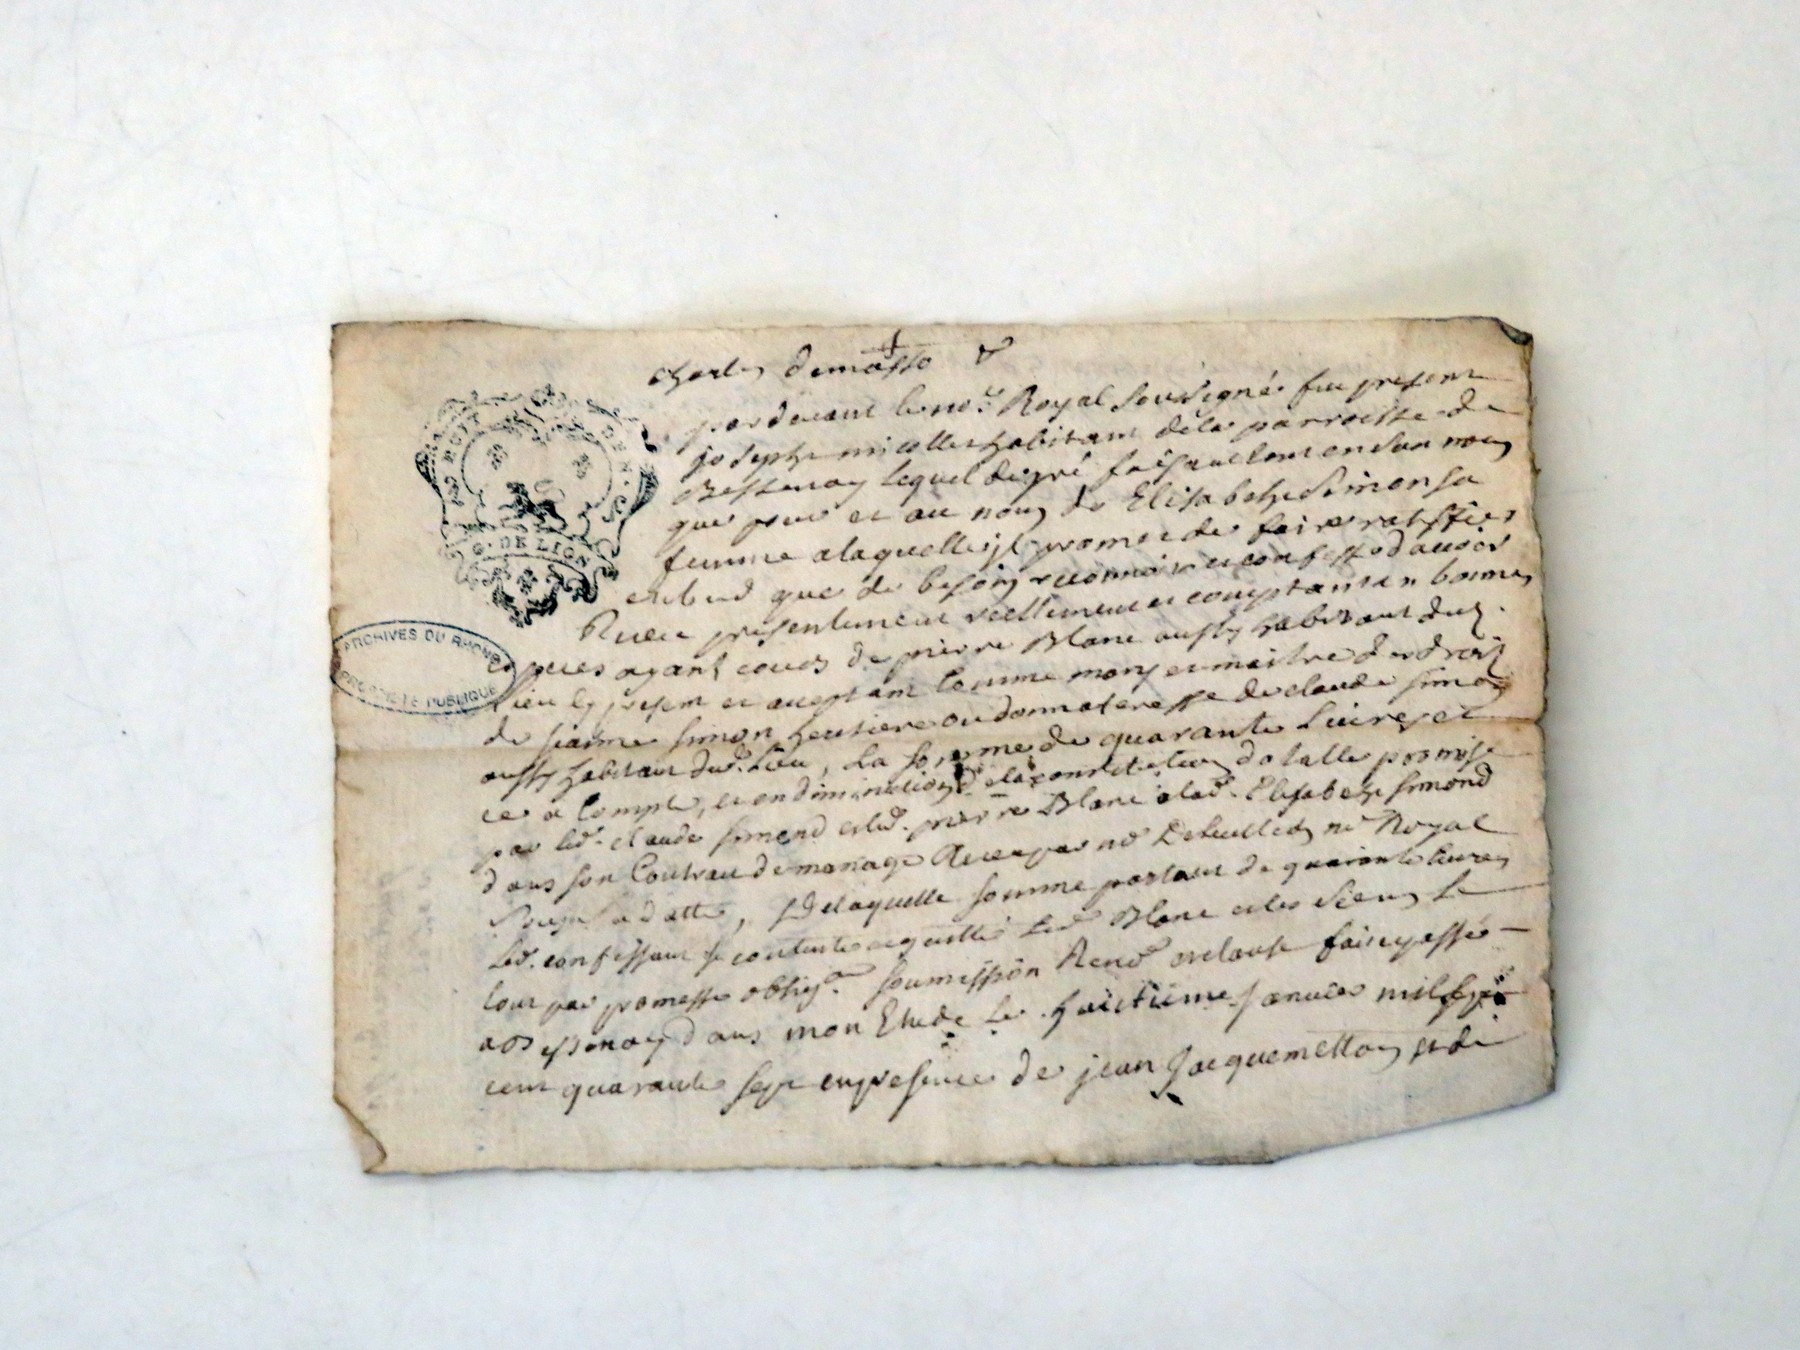 pardevant le no.re Royal Soussigné fut present
joseph micollet habitant dela parroisse de
Bessenay lequel de gré faisant tant en son nom
que pour et au nom de Elisabeth Simon sa
femme a laquelle il promet de faire ratiffier
que de besoin reconnoit et confesse d'avoir
Receu presentement reellement et comptant en bonnes
especes ayant cours de pierre Blanc aussy habitant dud.
lieu cy present et acceptant comme mary et maitre des droits
de simon heritiere ou donnateresse de claude simon
aussy habitant dud. Lieu, La somme de quarante Livres et
ce a Compte, et en diminution de la constitution dotalle promise
par led. claude simond et led. pierre Blanc a lad. Elisabeth simond
dans son Contrat de mariage Receu par me no.re Royal
sa datte, De laquelle somme portant de quarante livres
Led. confessant se contente et quitte Led. Blanc et les siens Le
tout par promesse oblig.on soumission Renon. et clause fait et passé
a Bessenay dans mon Etude Le huitieme janvier mil sept
cent quarante sept en presence de jean Jacquemetton et de
DE LION
ARCHIVES DU RHONE
PROPRIETE PUBLIQUE